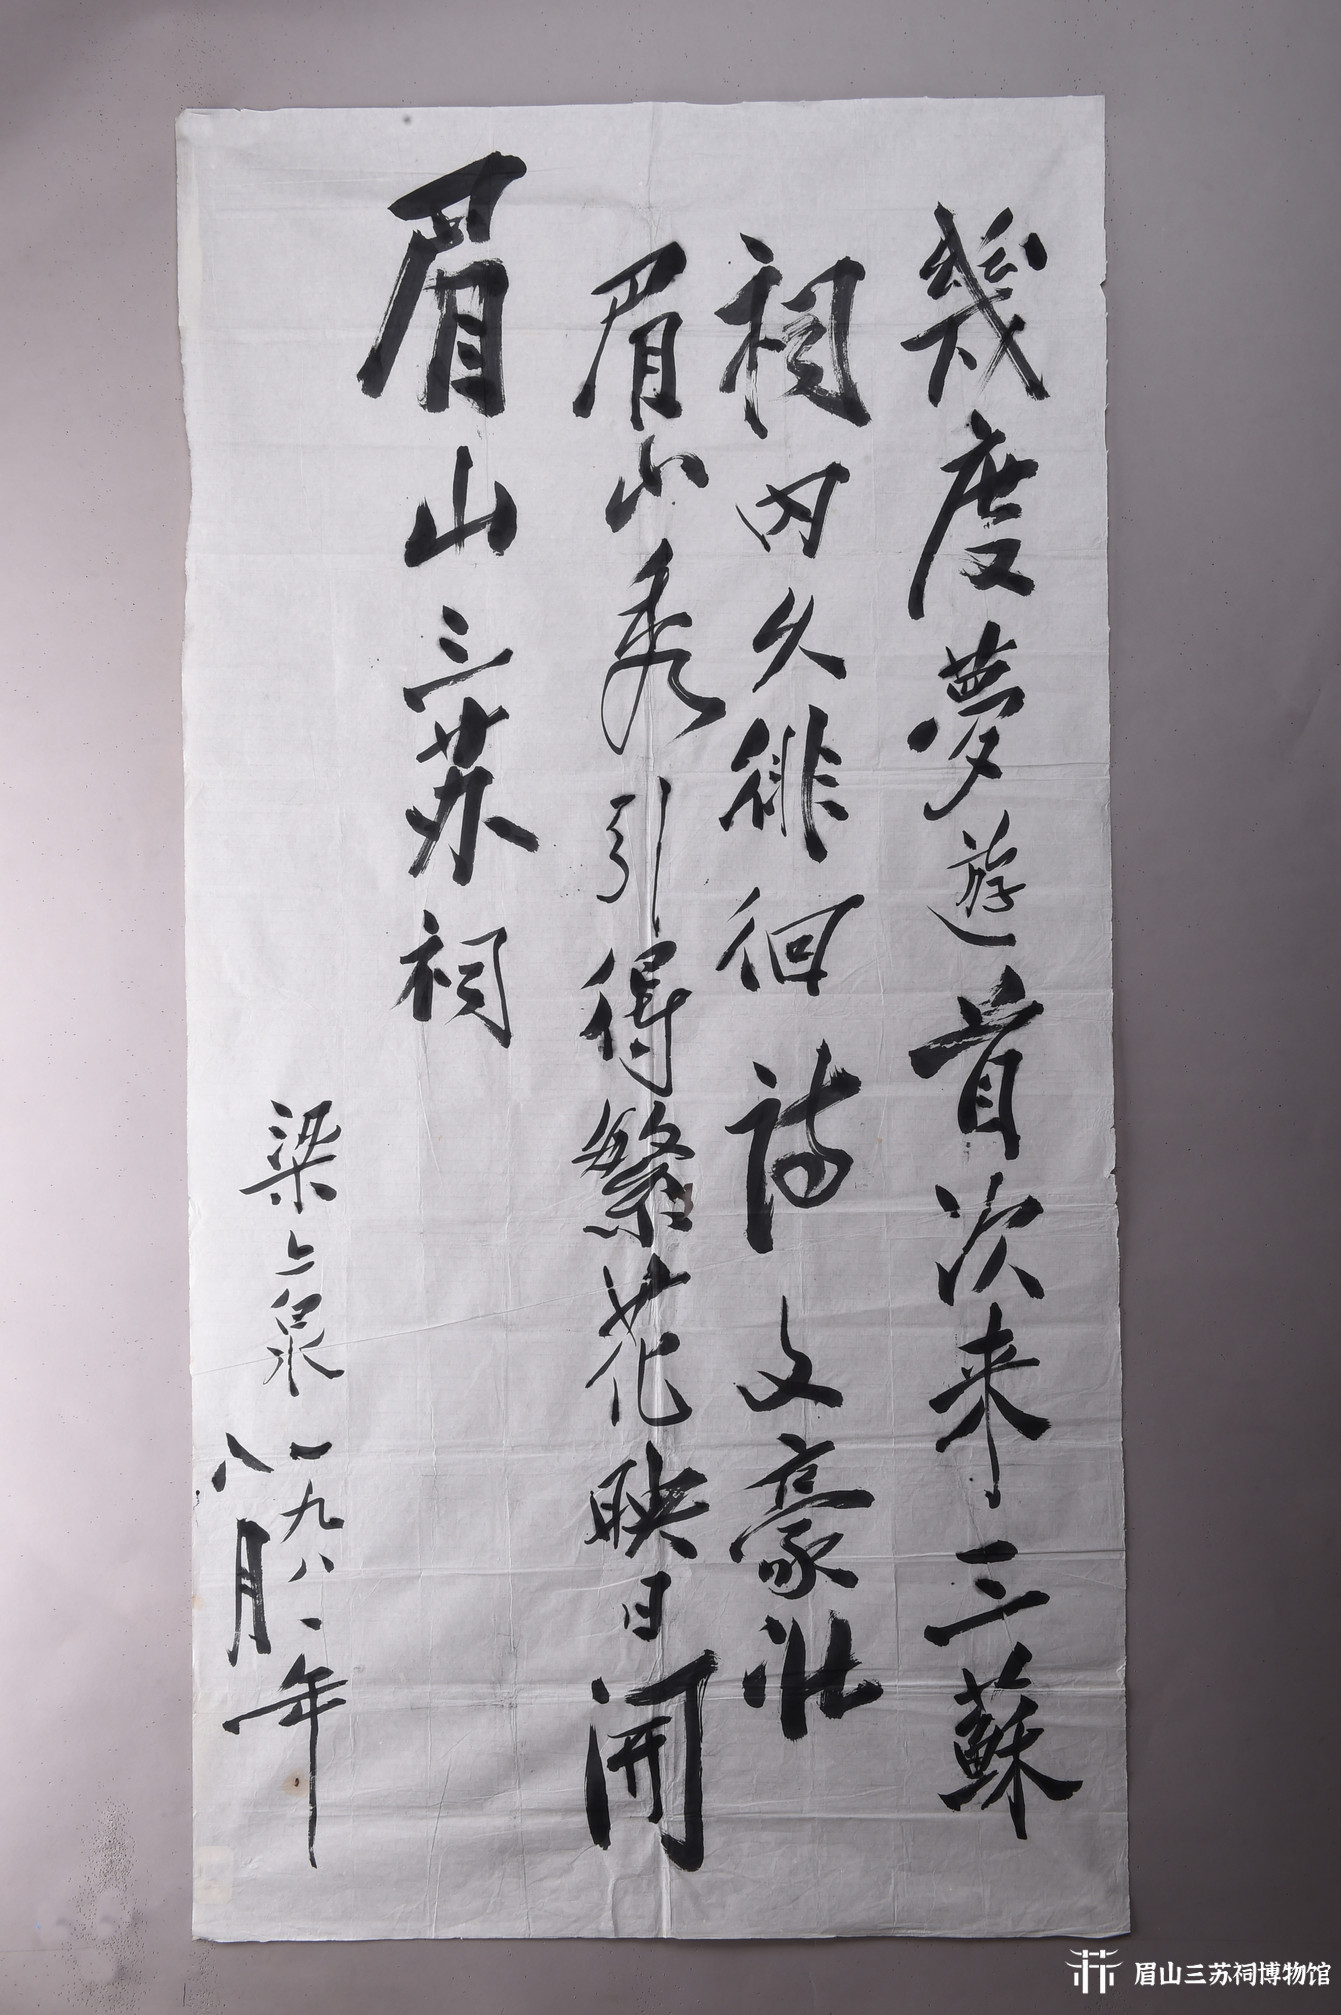 幾度夢遊首次来三蘇
祠内久徘徊詩文豪壮
眉山秀引得繁花映日開
眉山三苏祠
梁上泉一九八一年
八月
眉山三苏祠博物馆